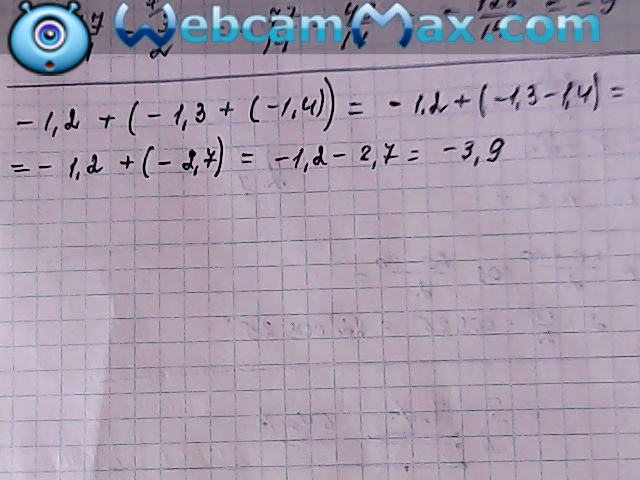 WebcamMax.com
- 1,2 + (- 1,3 + (-1,4)) = - 1,2 + (-1,3 - 1,4) =
= - 1,2 + (- 2,7) = -1,2 - 2,7 = -3,9